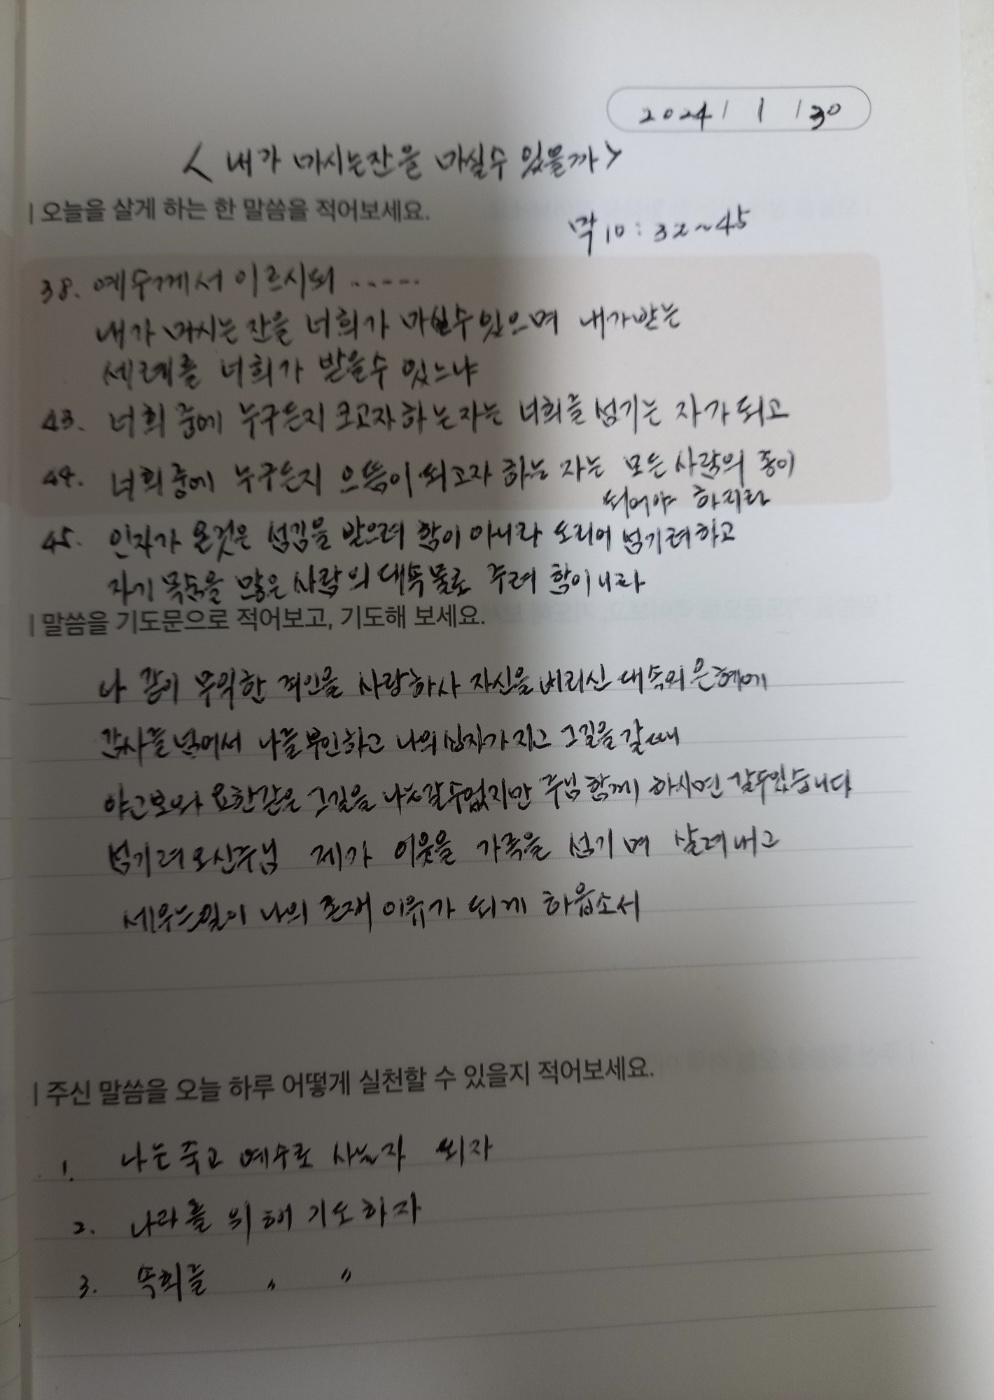 2024 / 1 / 30
< 내가 마시는 잔을 마실수 있을까 >
| 오늘을 살게 하는 한 말씀을 적어보세요.
막 10 : 32~45
38. 예수께서 이르시되 ......
내가 마시는 잔을 너희가 마실수 있으며 내가 받는
세례를 너희가 받을수 있느냐
43. 너희 중에 누구든지 크고자 하는 자는 너희를 섬기는 자가 되고
44. 너희 중에 누구든지 으뜸이 되고자 하는 자는 모든 사람의 종이
되어야 하리라
45. 인자가 온것은 섬김을 받으려 함이 아니라 도리어 섬기려 하고
자기 목숨을 많은 사람의 대속물로 주려 함이니라
| 말씀을 기도문으로 적어보고, 기도해 보세요.
나 같이 무익한 죄인을 사랑하사 자신을 버리신 대속의 은혜에
감사를 넘어서 나를 부인하고 나의 십자가 지고 그길을 갈때
야고보와 요한같은 그길을 나는 갈수없지만 주님 함께 하시면 갈수있습니다
섬기려 오신주님 제가 이웃을 가족을 섬기며 살려내고
세우는일이 나의 존재 이유가 되게 하옵소서
| 주신 말씀을 오늘 하루 어떻게 실천할 수 있을지 적어보세요.
1. 나는 죽고 예수로 사는자 되자
2. 나라를 위해 기도하자
3. 속회를 〃 〃